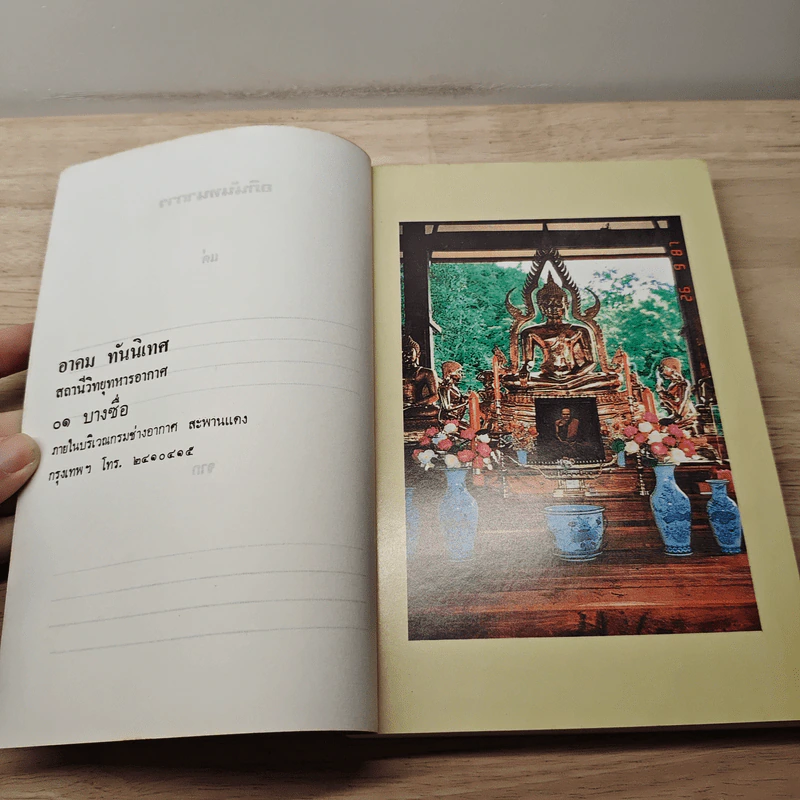 อภินันทนาการ
แด่
อาคม ทันนิเทศ
สถานีวิทยุทหารอากาศ
๐๑ บางซื่อ
ภายในบริเวณกรมช่างอากาศ สะพานแดง
กรุงเทพฯ โทร. ๒๔๑๐๔๑๕
จาก